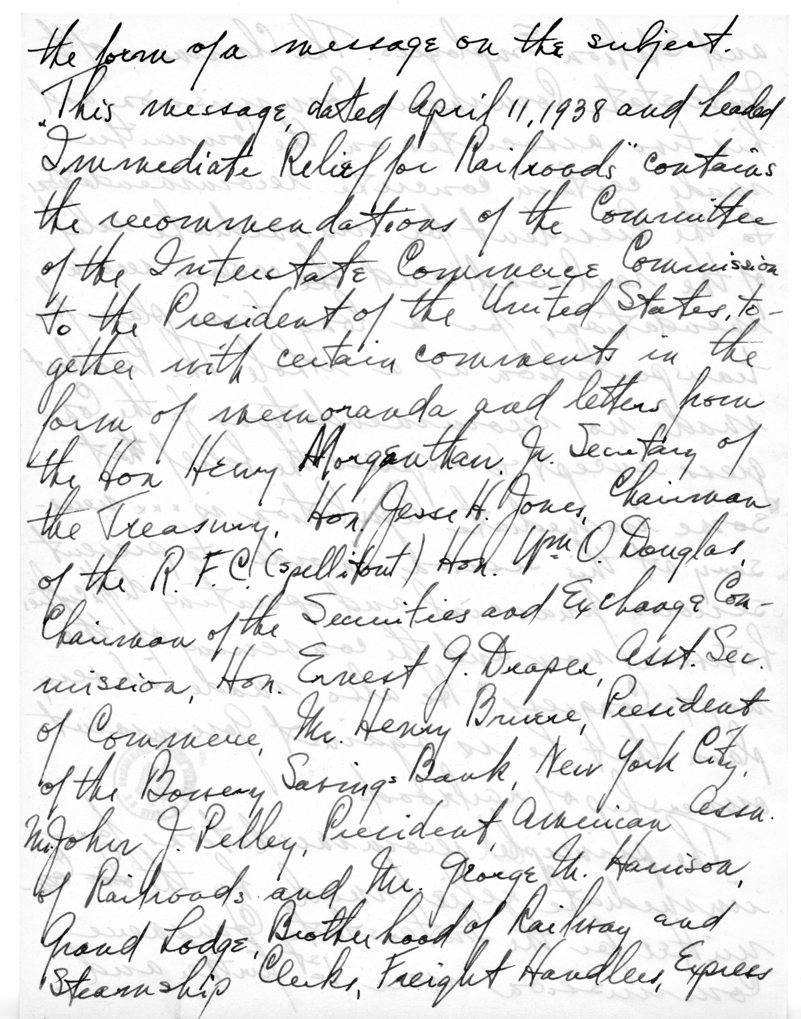 the form of a message on the subject.
"This message, dated April 11, 1938 and headed
Immediate Relief for Railroads" contains
the recommendations of the Committee
of the Interstate Commerce Commission
to the President of the United States, to-
gether with certain comments in the
form of memoranda and letters from
the Hon Henry Morganthau, Jr. Secretary of
the Treasury, Hon. Jesse H. Jones, Chairman
of the R. F. C. (spell it out) Hon. Wm O. Douglas,
Chairman of the Securities and Exchange Com-
mission, Hon. Ernest G. Draper, Asst. Sec.
of Commerce, Mr. Henry Bruere, President
of the Bowery Savings Bank, New York City,
Mr. John J. Pelley, President, American Assn.
of Railroads and Mr. George M. Harrison,
Grand Lodge, Brotherhood of Railway and
Steamship Clerks, Freight Handlers, Express